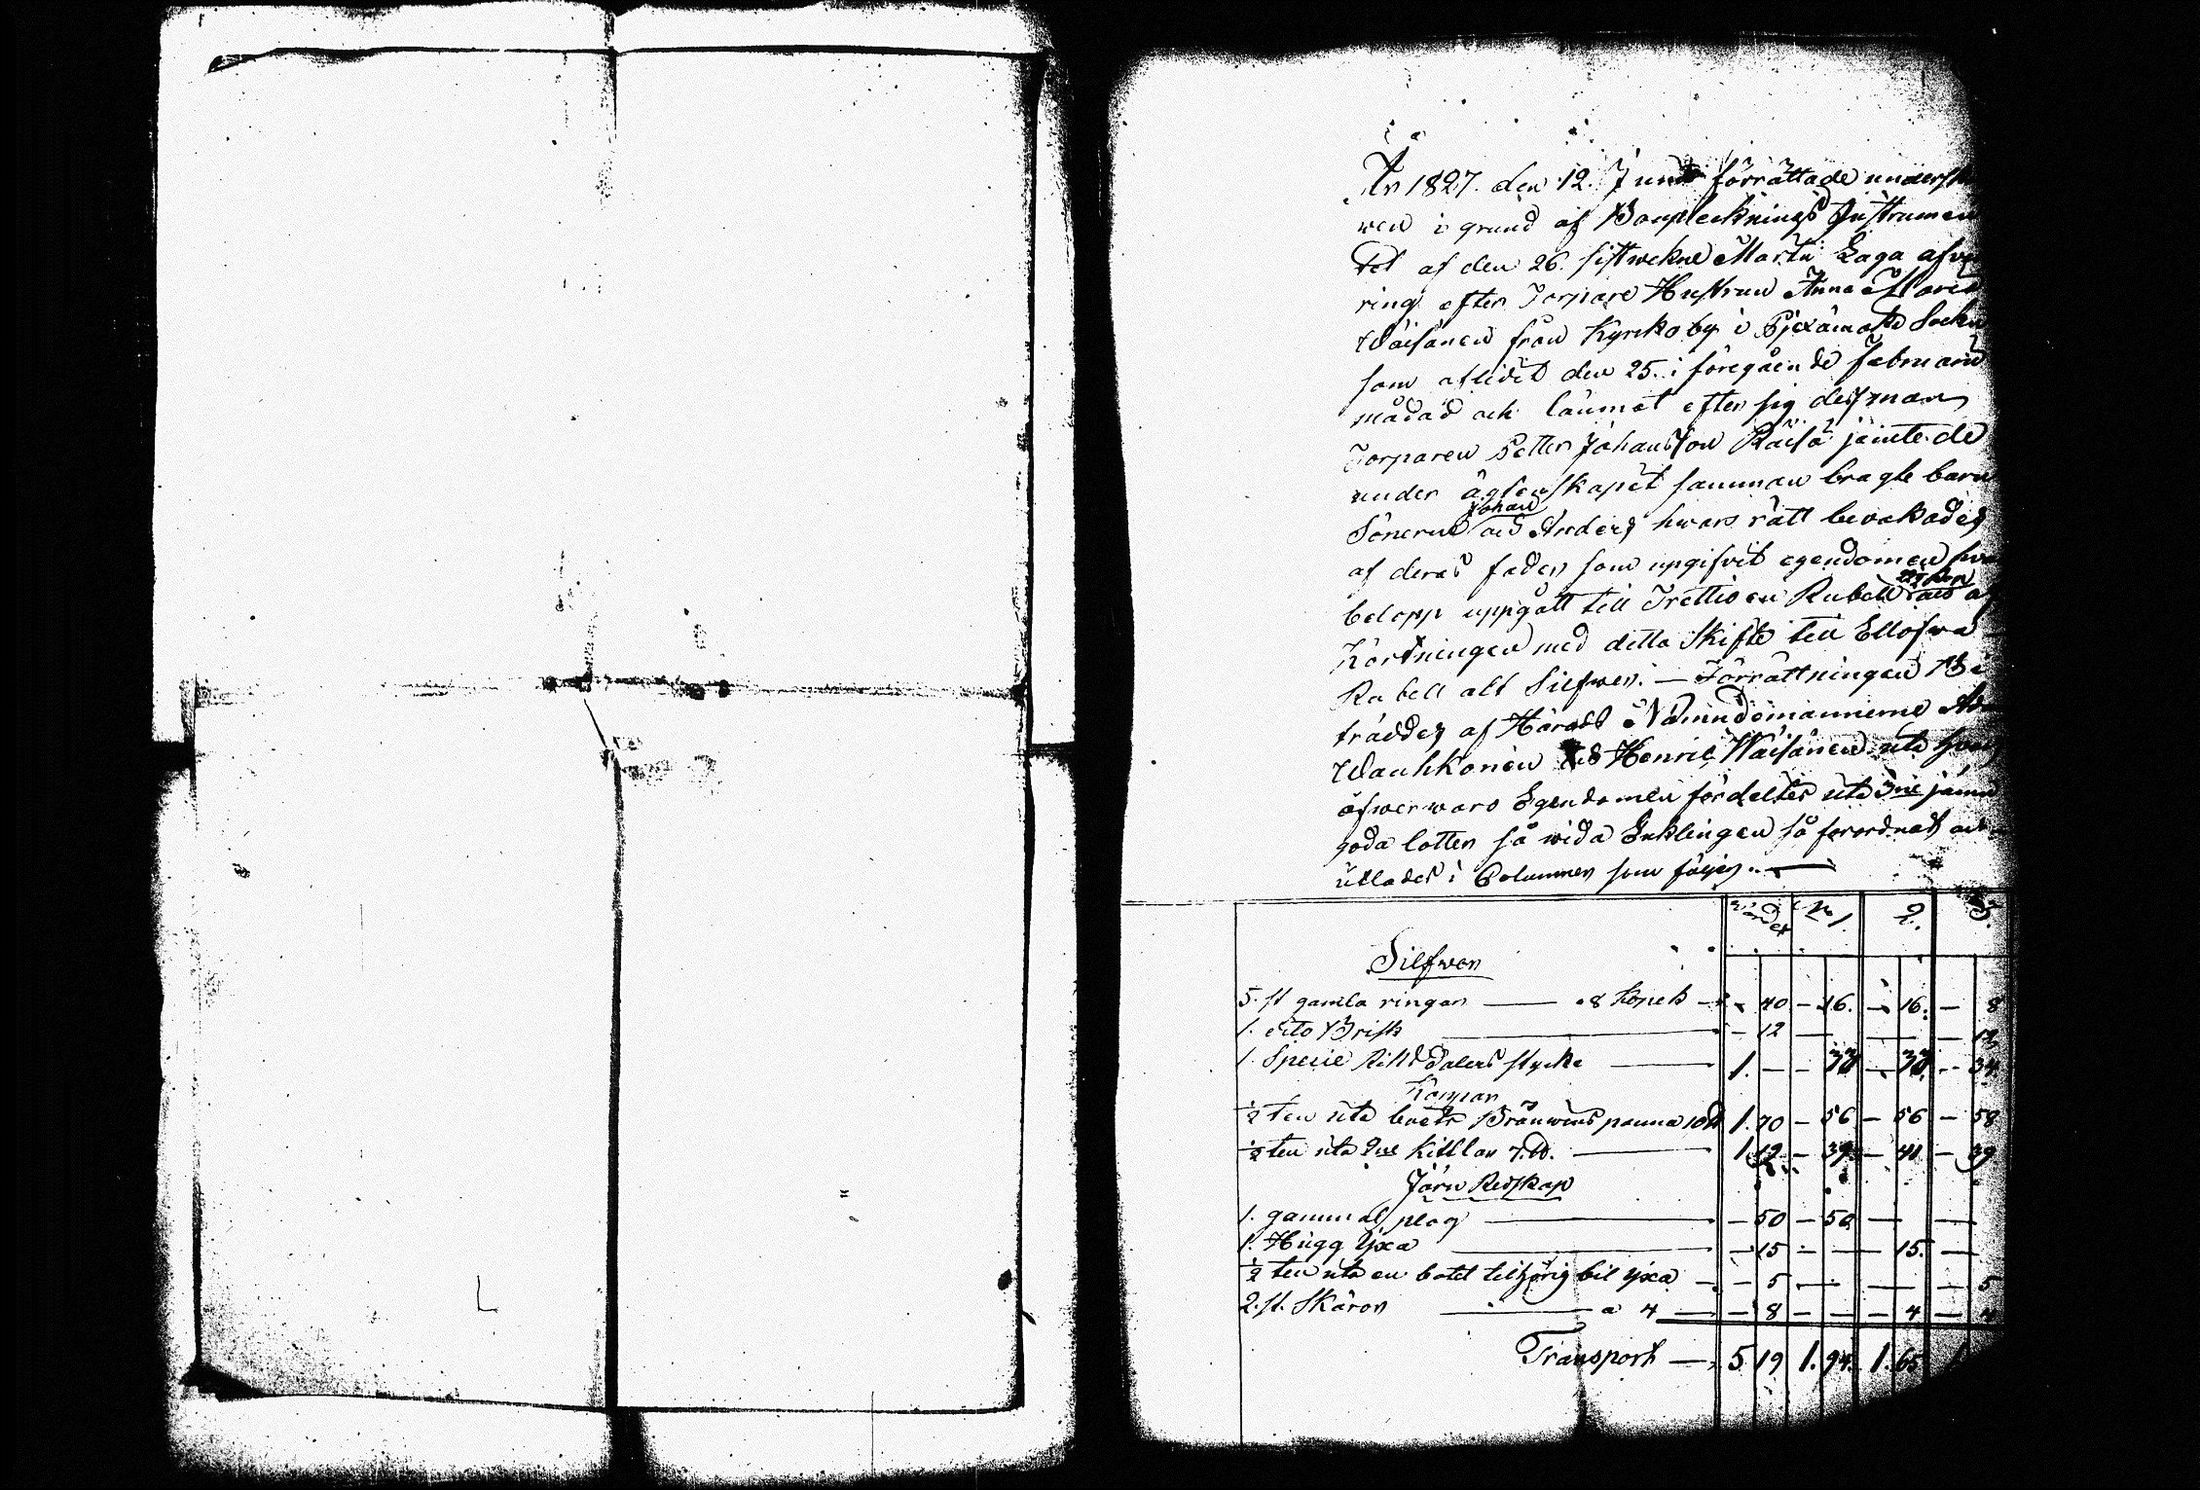 År 1827. den 12. Juni förrättade undersk
ren i grund af Bouptecknings Instrumen
tet af den 26. sistwekne Martii Laga afvi
ring efter Torpare Hustrun Anna Maria
Wäisänen från Kyrkoby i Pjexämäki Sockn
som aflidit den 25. i föregående Februarii
månad och lämnat efter sig dess man
Torparen Petter Johansson Räisä jämte de
under ägtenskapet samman bragte barn
Sönerne Johan och Anders hwars rätt bevakades
af deras fader som upgifvit egendomen hva
belopp uppgått till Trettio en Rubell
Kortningen med detta Skifte till Ellofva
Rubell alt Silfwer. — Förrättningen Bi
träddes af Härads Nämndemännerne
Wauhkonen och Henric Wäisänen uti
öfwerwaro Egendomen fördeltes uti 3ne jämn
goda lotter så wida Enklingen så förordnat och
utlades i Columner som följer. —
Wärdet No 1. 2. 3.
Silfwer
5. st gamla ringar — a 8 Kopek — 40 — 16. — 16. — 8
1. dito Brisk — 12 — — — 12
1. Specie Riksdalers stycke — 1. — — 33 — 33 — 34
Koppar
1/2 ten uti boets Bränwins panna 10 1. 70 — 56 — 56 — 58
1/2 ten uti 2ne Kittlar 7. — 1. 19 — 39 — 41 — 39
Järn Redskap
1. gammal plog — 50 — 50 — —
1. Hugg Yxa — 15 — — 15. —
1/2 ten uti en botet tilhörig bil yxa — 5 — — — 5
2. st. Skäror — a 4 — 8 — — — 4 — 4
Transport — 5 19 1. 94. 1. 65